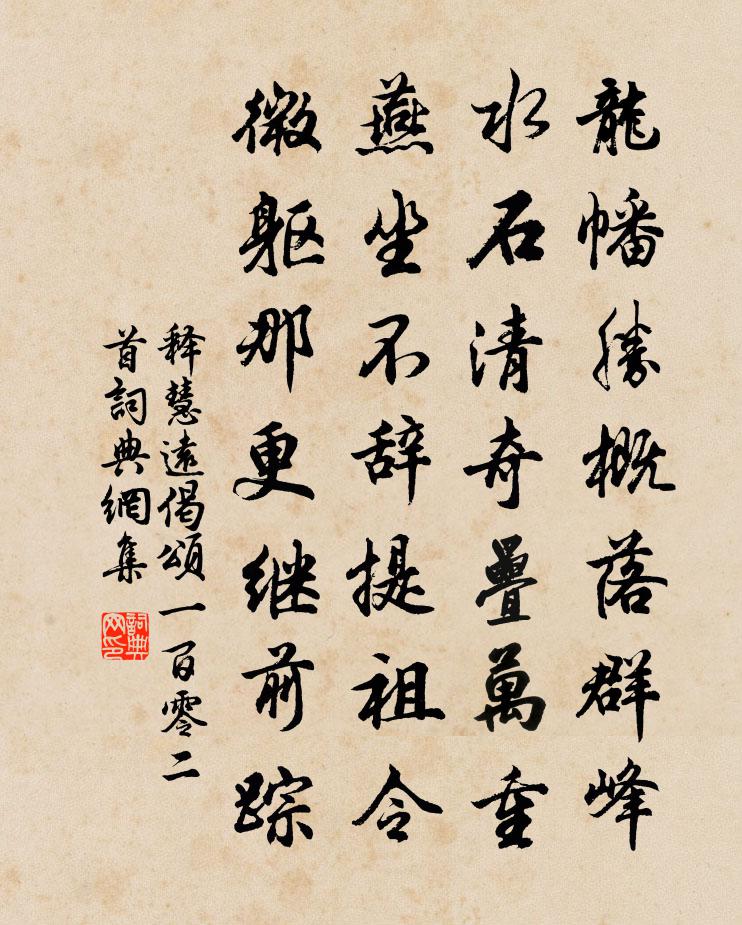 龍幡勝概落群峰
水石清奇疊萬重
燕坐不辞提祖令
微躯那更继前踪
释慧遠偈頌一百零二
首詞典網集
詞典网印